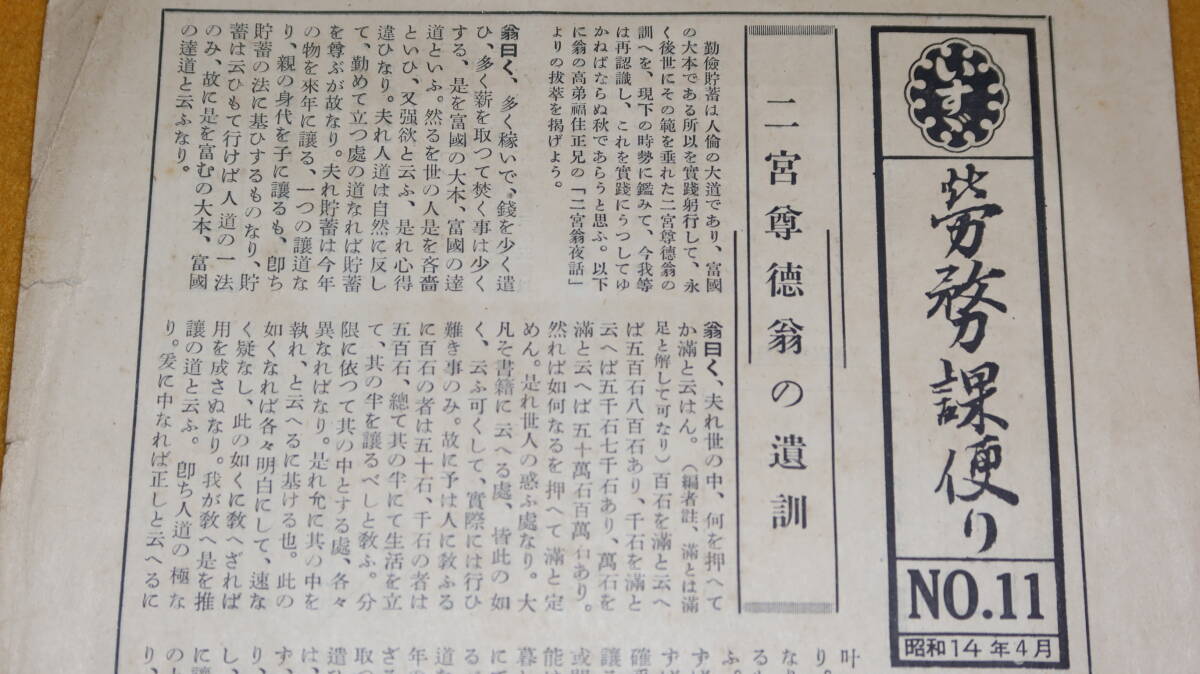 いすゞ
勞務課便り
NO.11
昭和14年4月
二宮尊德翁の遺訓
勤儉貯蓄は人倫の大道であり、富國
の大本である所以を實踐躬行して、永
く後世にその範を垂れた二宮尊德翁の
訓へを、現下の時勢に鑑みて、今我等
は再認識し、これを實踐にうつしてゆ
かねばならぬ秋であらうと思ふ。以下
に翁の高弟福住正兄の「二宮翁夜話」
よりの拔萃を揭げよう。
翁曰く、多く稼いで、錢を少く遣
ひ、多く薪を取つて焚く事は少く
する、是を富國の大本、富國の達
道といふ。然るを世の人是を吝嗇
といひ、又强欲と云ふ、是れ心得
違ひなり。夫れ人道は自然に反し
て、勤めて立つ處の道なれば貯蓄
を尊ぶが故なり。夫れ貯蓄は今年
の物を來年に讓る、一つの讓道な
り、親の身代を子に讓るも、卽ち
貯蓄の法に基ひするものなり、貯
蓄は云ひもて行けば人道の一法
のみ、故に是を富むの大本、富國
の達道と云ふなり。
翁曰く、夫れ世の中、何を押へて
か滿と云はん。（編者註、滿とは滿
足と解して可なり）百石を滿と云へ
ば五百石八百石あり、千石を滿と
云へば五千石七千石あり、萬石を
滿と云へば五十萬石百萬石あり。
然れば如何なるを押へて滿と定
めん。是れ世人の惑ふ處なり。大
凡そ書籍に云へる處、皆此の如
く、云ふ可くして、實際には行ひ
難き事のみ。故に予は人に敎ふる
に百石の者は五十石、千石の者は
五百石、總て其の半にて生活を立
て、其の半を讓るべしと敎ふ。分
限に依つて其の中とする處、各々
異なればなり。是れ允に其の中を
執れ、と云へるに基ける也。此の
如くなれば各々明白にして、速な
く疑なし、此の如くに敎へざれば
用を成さぬなり。我が敎へ是を推
讓の道と云ふ。卽ち人道の極な
り。爰に中なれば正しと云へるに
叶